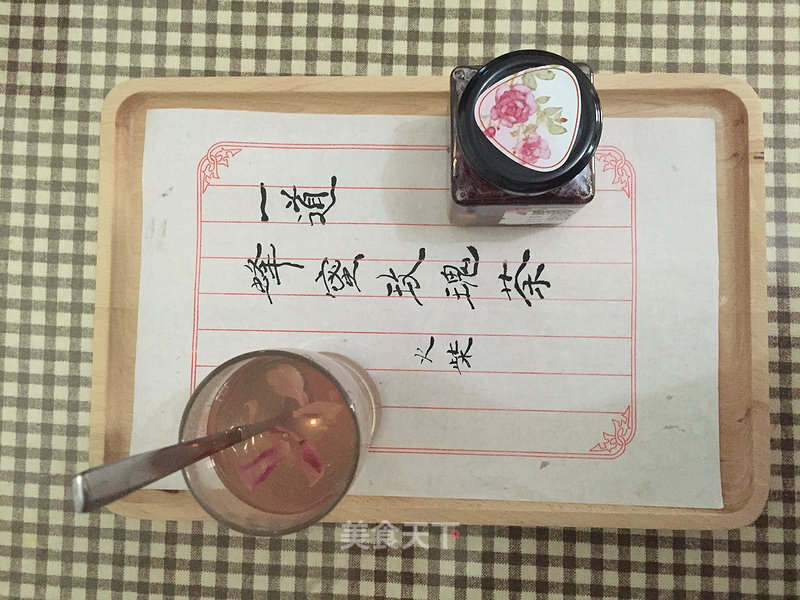 一道
蜂蜜玫瑰茶
火柴
美食天下